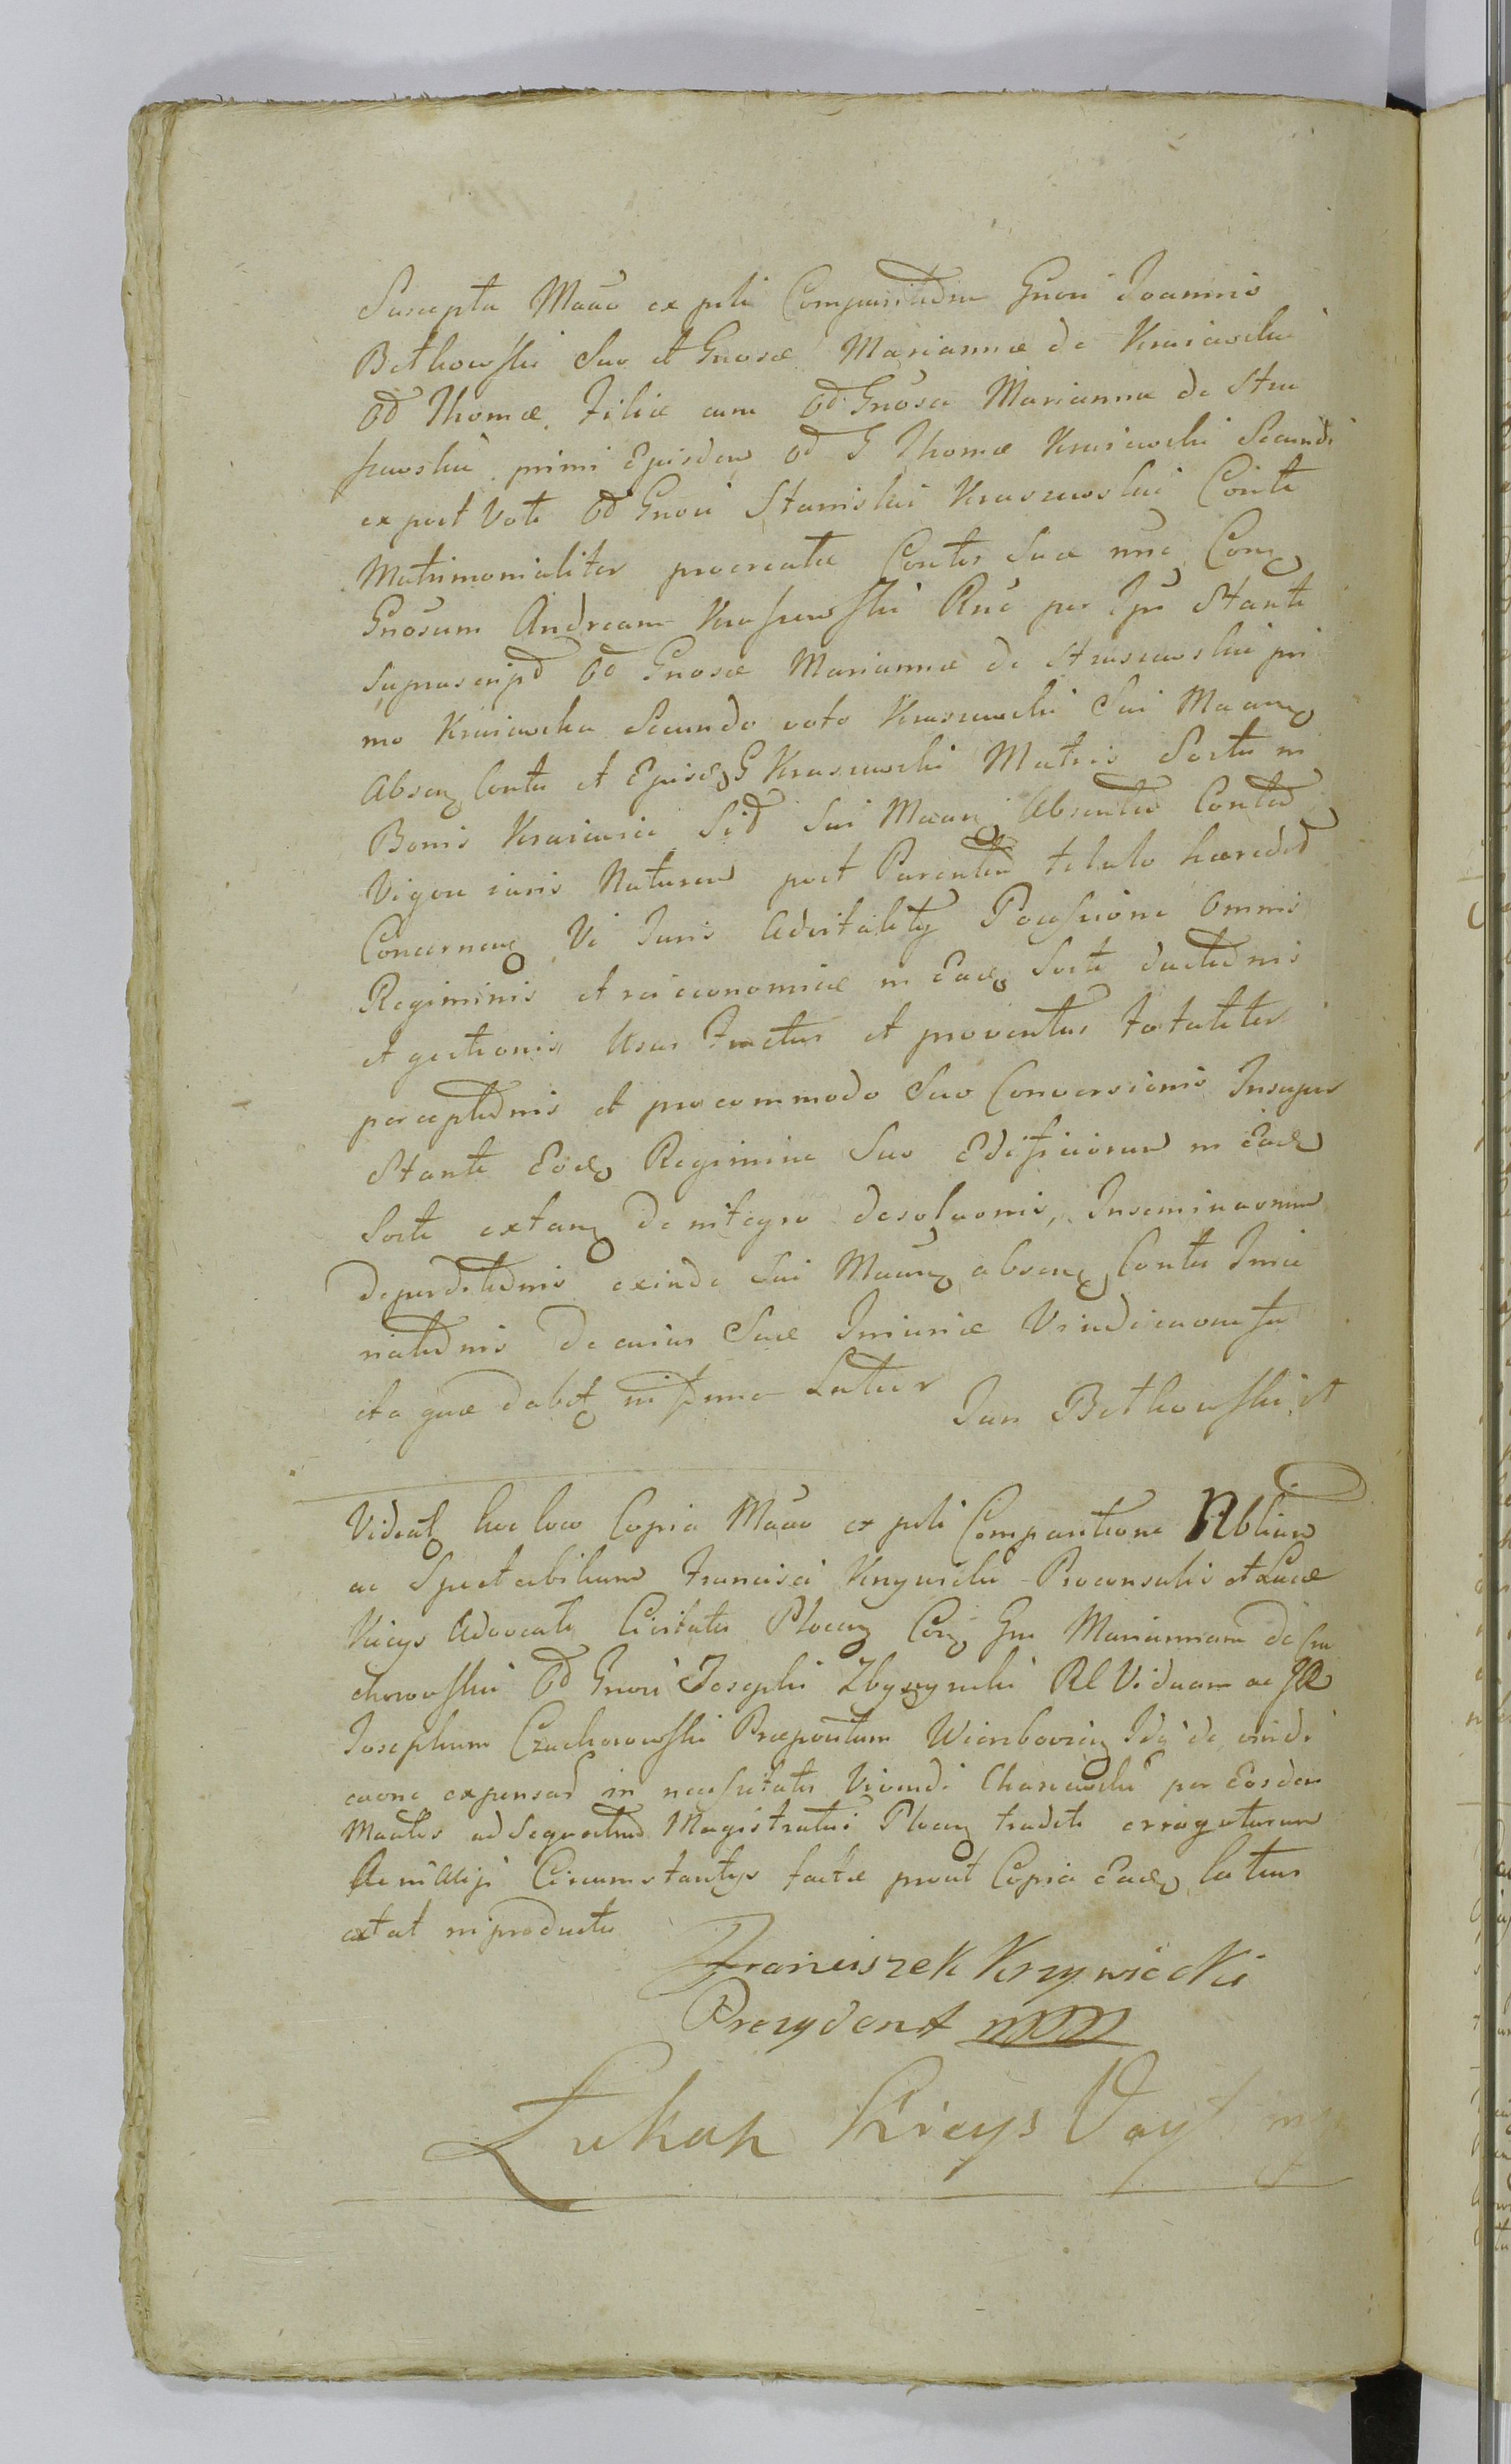 Suscepta Mattio ex psli Comparitdne Gnosi Joannis
Bethowski Suo et Gnosæ Mariannæ de Krasiewskie
Od Thomæ Filiæ cum Od Gnosa Marianna de Stra
szewskie primi Ejusdem Od G Thomæ Krasiewski Secundi
ex post Voti Od Gnosi Stanislai Kraszewski Conte
Matrimonialiter procreatæ Contis Suæ nne Con
Gnosum Andream Kraszewski Rne per Ipm Stante
suprascripd Od Gnosæ Mariannæ de Straszewskie pri
mo Krasiewska Secundo voto Kraszewski Sui Maan
Absen Contis et Ejusd G Kraszewski Matris Sorte in
Bonis Sid Sui Maan Absentis Contis
Vigore iuris Naturæ post Parentes titulo hæredit
Concernen Vi Juris Advitalit Possessione Omnis
Regiminis et rei œconomicæ in Ead Sorte ductudnis
et gestionis Usus Fructus et proventus totaliter
perceptudnis et pro commodo Suo Conversionis Insuper
Stante Eod Regimine Suo Edificiorum in Ead
Sorte extan de integro desolaonis, Inseminaonum
deperditudnis exinde Sui Maan absen Contis Iniu
riatudnis de cuius Suæ Iniuriæ Vindicaone fa
cta quæ dabit in Latius
Jan Bethowski
Videat hoc loco Copia Maao ex psli Comparitione Nblium
ac Spectabilium Francisci Krzywicki Proconsulis et Lucæ
Kicys Advocati Civitatis Plocen Con Gm Mariannam de Cza
chorowskie Od Gnosi Josephi Zbyszynski Rl Viduam ac JR
Josephum Czachorowski Præpositum Id de vindi
caone expensar in necessitates Vivendi per Eosdem
Maates ad Sequestrum Magistratui Plocen traditi errogatarum
Ac in Alijs Circumstantijs factæ prout Copia Ead latius
extat in producto
Franciszek Krzywicki
Prezydent mpp
Łukasz Kicys Voyt mp